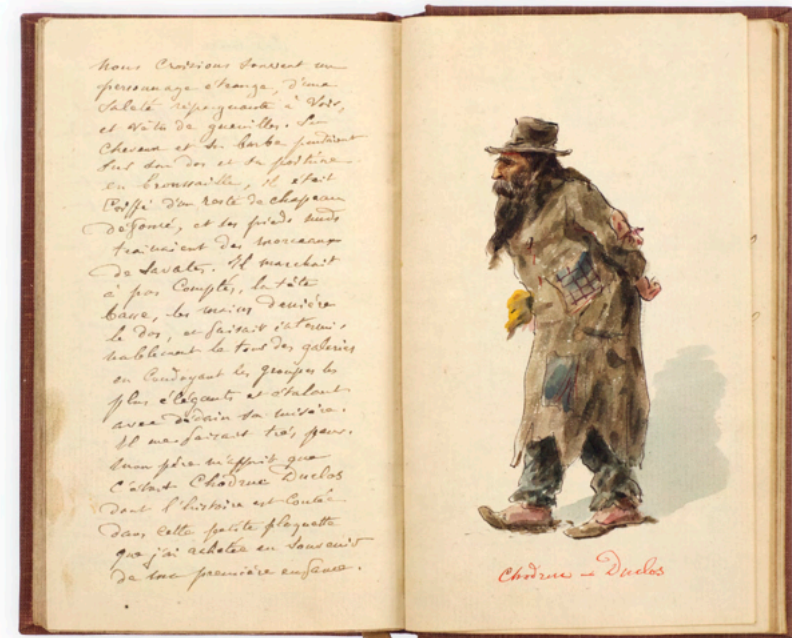 Nous Croisions souvent un
personnage étrange, d'une
Saleté répugnante à Voir,
et vêtu de guenilles. Ses
Cheveux et sa barbe pendaient
sur son dos et sa poitrine
en broussaille, il était
Coiffé d'un reste de chapeau
déformé, et ses pieds nuds
trainaient des morceaux
de Savates. Il marchait
à pas Comptés, la tête
basse, les mains derrière
le dos, et faisait intermi,
nablement le tour des galeries
en Coudoyant les groupes les
plus élégants et étalant
avec dédain sa misère.
Il me faisait très peur.
mon père m'apprit que
C'était Chodruc Duclos
dont l'histoire est Contée
dans cette petite plaquette
que j'ai achetée en Souvenir
de ma première enfance.
Chodruc – Duclos